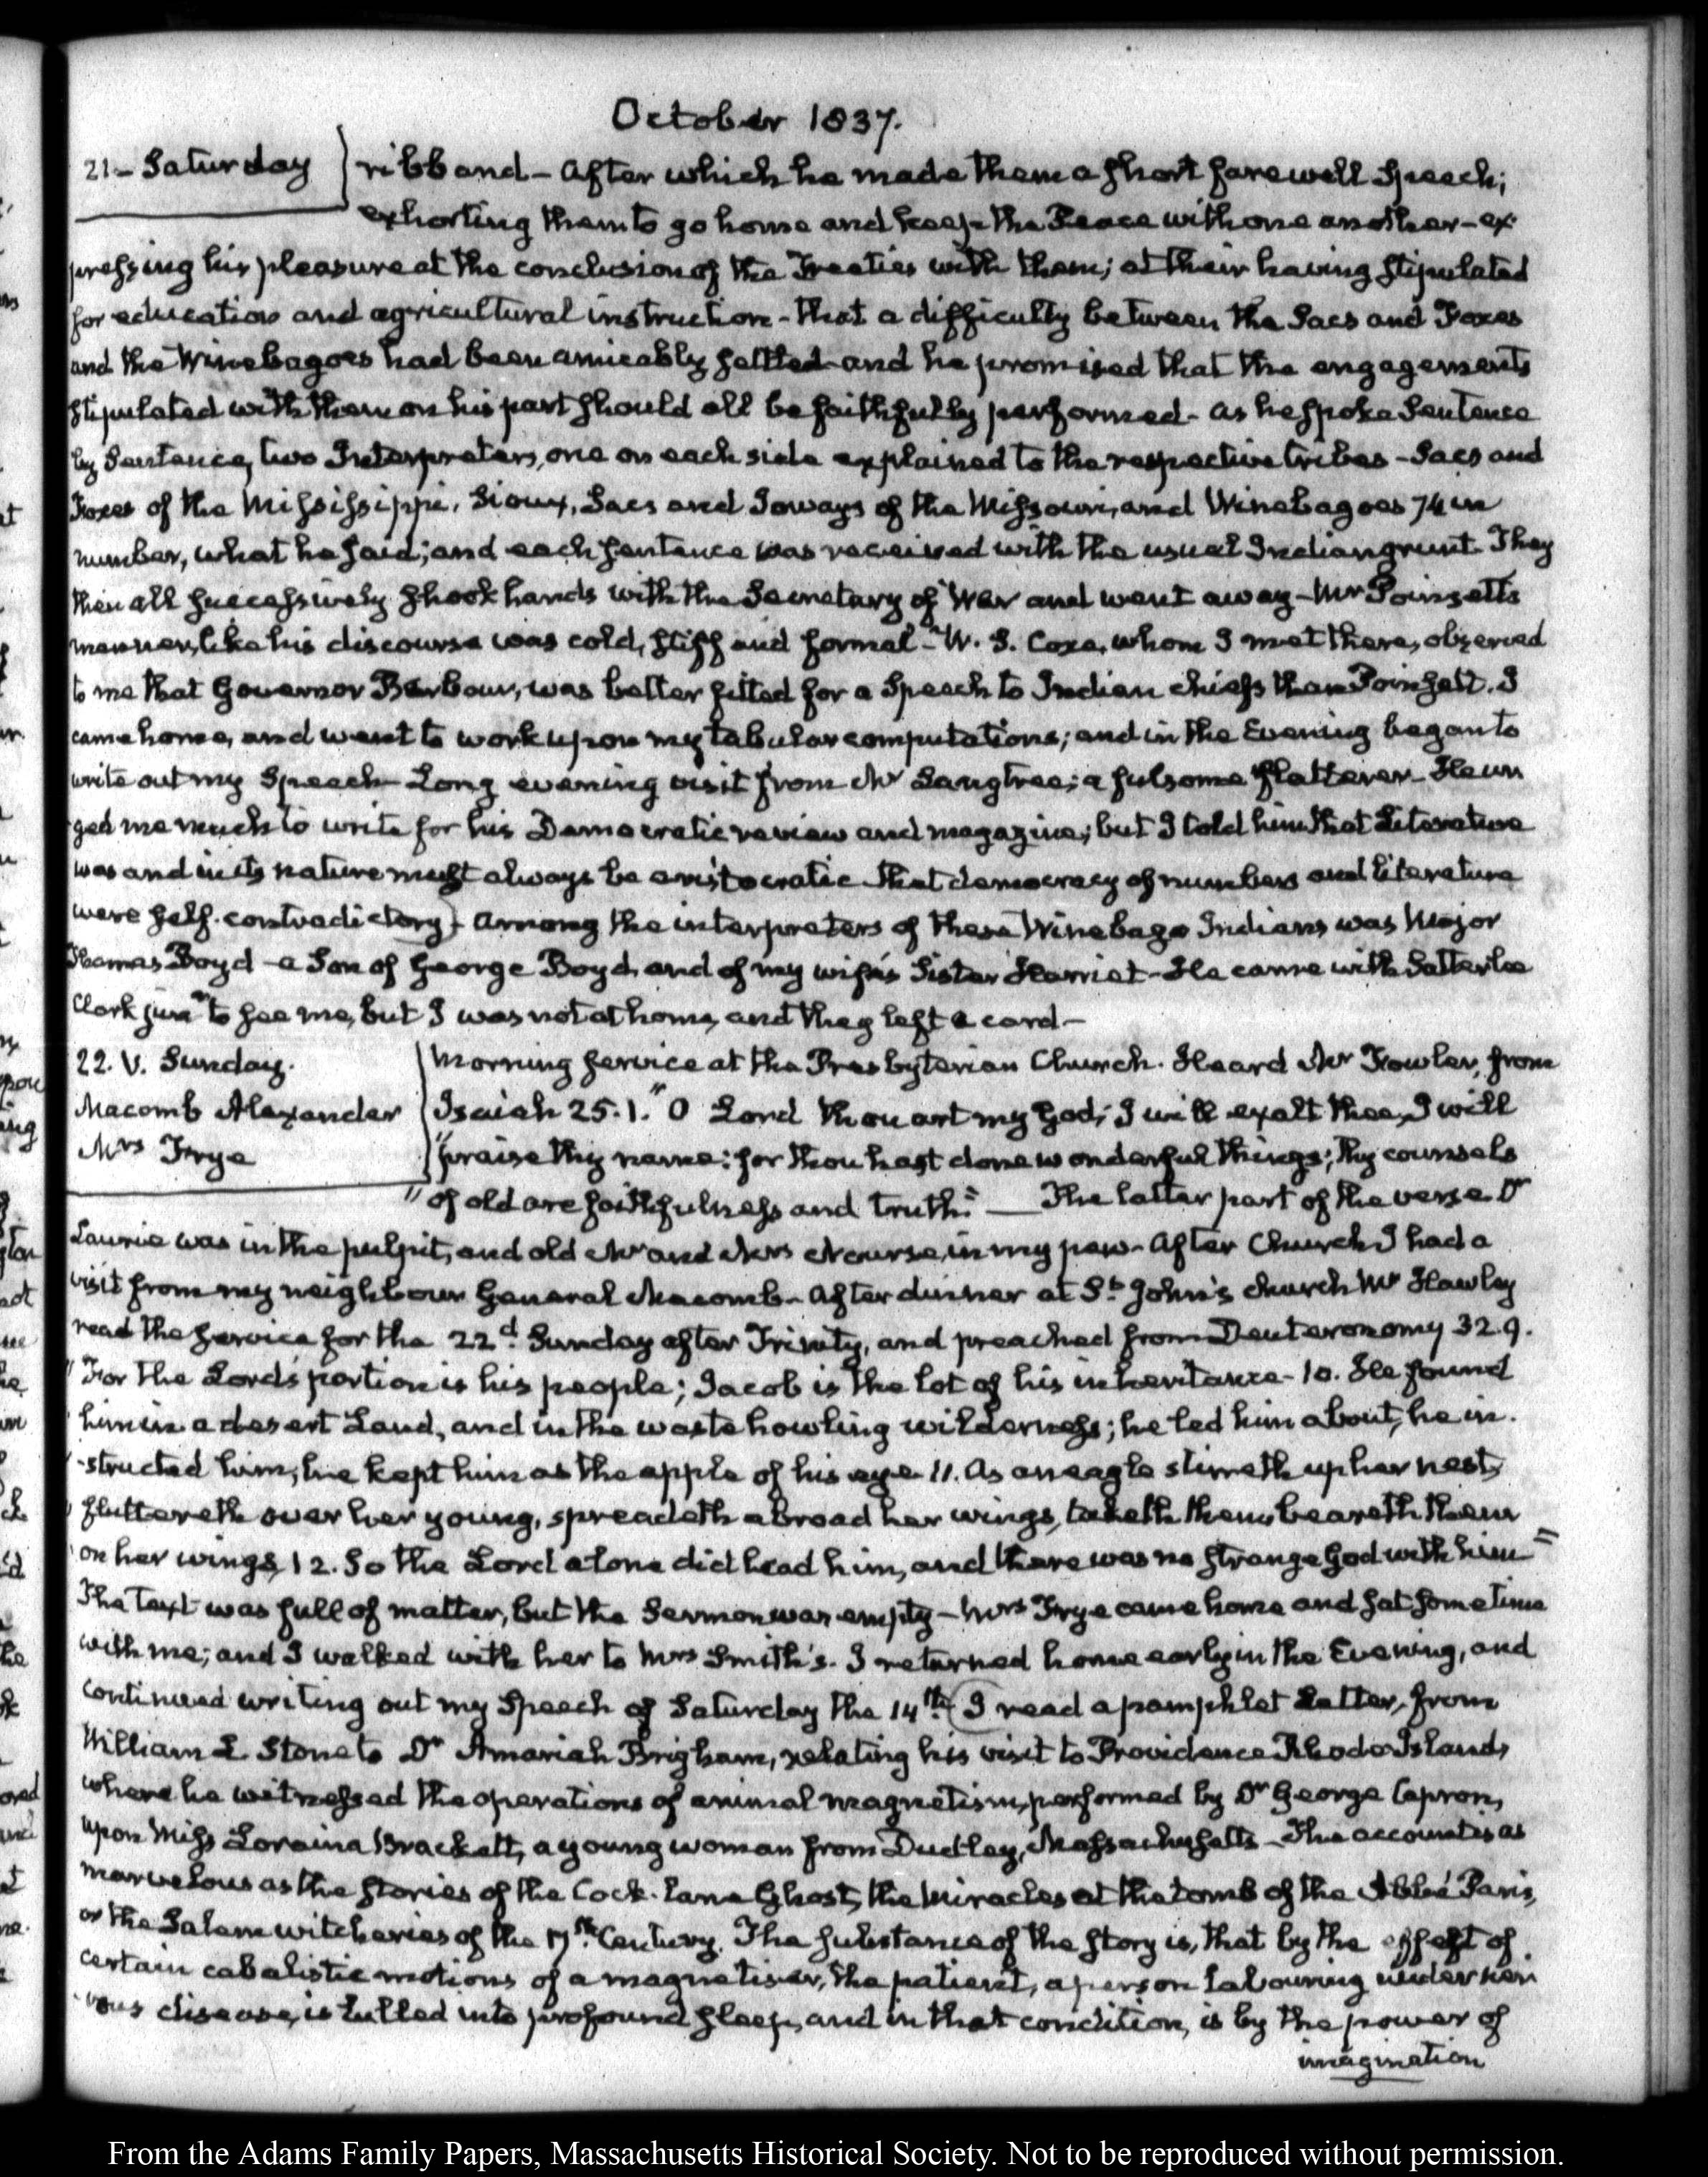 October 1837.
21 – Saturday
ribband – After which he made them a short farewell Speech;
exhorting them to go home and keep the Peace with one another – ex-
pressing his pleasure at the conclusion of the Treaties with them; at their having stipulated
for education and agricultural instruction – that a difficulty between the Sacs and Foxes
and the Winebagoes had been amicably settled and he promised that the engagements
stipulated with them on his part should all be faithfully performed – As he spoke Sentence
by Sentence, two Interpreters, one on each side explained to the respective tribes – Sacs and
Foxes of the Mississippi, Sioux, Sacs and Ioways of the Missouri, and Winebagoes 74 in
number, what he said; and each sentence was received with the usual Indian grunt. They
then all successively shook hands with the Secretary of War and went away – Mr Poinsett's
manner, like his discourse was cold, stiff and formal – W. S. Coxe, whom I met there, observed
to me that Governor Barbour, was better fitted for a Speech to Indian chiefs than Poinsett. I
came home, and went to work upon my tabular computations; and in the Evening began to
write out my Speech – Long evening visit from Mr Langtree; a fulsome flatterer – He ur
ged me much to write for his Democratic review and magazine; but I told him that Literature
was and in its nature must always be aristocratic that democracy of numbers and literature
were self-contradictory – Among the interpreters of these Winebago Indians was Major
Thomas Boyd – a Son of George Boyd and of my wife's Sister Harriet – He came with Satterlee
Clark junr to see me, but I was not at home, and they left a card –
22. V. Sunday.
Macomb Alexander
Mrs Frye
Morning service at the Presbyterian Church. Heard Mr Fowler, from
Isaiah 25.1. "O Lord thou art my God; I will exalt thee, I will
"praise thy name: for thou hast done wonderful things; thy counsels
"of old are faithfulness and truth." — The latter part of the verse Dr
Laurie was in the pulpit, and old Mr and Mrs Nourse, in my pew – After Church I had a
visit from my neighbour General Macomb – After dinner at St. John's church Mr Hawley
read the service for the 22d. Sunday after Trinity, and preached from Deuteronomy 32.9.
"For the Lord's portion is his people; Jacob is the lot of his inheritance – 10. He found
"him in a desert Land, and in the waste howling wilderness; he led him about, he in-
"-structed him, he kept him as the apple of his eye 11. As an eagle stirreth up her nest,
"fluttereth over her young, spreadeth abroad her wings, taketh them, beareth them
"on her wings, 12. So the Lord alone did lead him, and there was no strange God with him"
The text was full of matter, but the Sermon was empty – Mrs Frye came home and sat some time
with me; and I walked with her to Mrs Smith's. I returned home early in the Evening, and
continued writing out my Speech of Saturday the 14th. I read a pamphlet Letter, from
William L Stone to Dr Amariah Brigham, relating his visit to Providence Rhode Island,
where he witnessed the operations of animal magnetism, performed by Dr George Capron,
upon Miss Loraina Brackett, a young woman from Dudley, Massachusetts – The account is as
marvelous as the stories of the Cock-lane Ghost, the Miracles at the tomb of the Abbé Paris,
or the Salem witcheries of the 17th. Century. The substance of the story is, that by the effect of
certain cabalistic motions of a magnetiser, the patient, a person labouring under ner
vous disease, is lulled into profound sleep, and in that condition, is by the power of
imagination
From the Adams Family Papers, Massachusetts Historical Society. Not to be reproduced without permission.